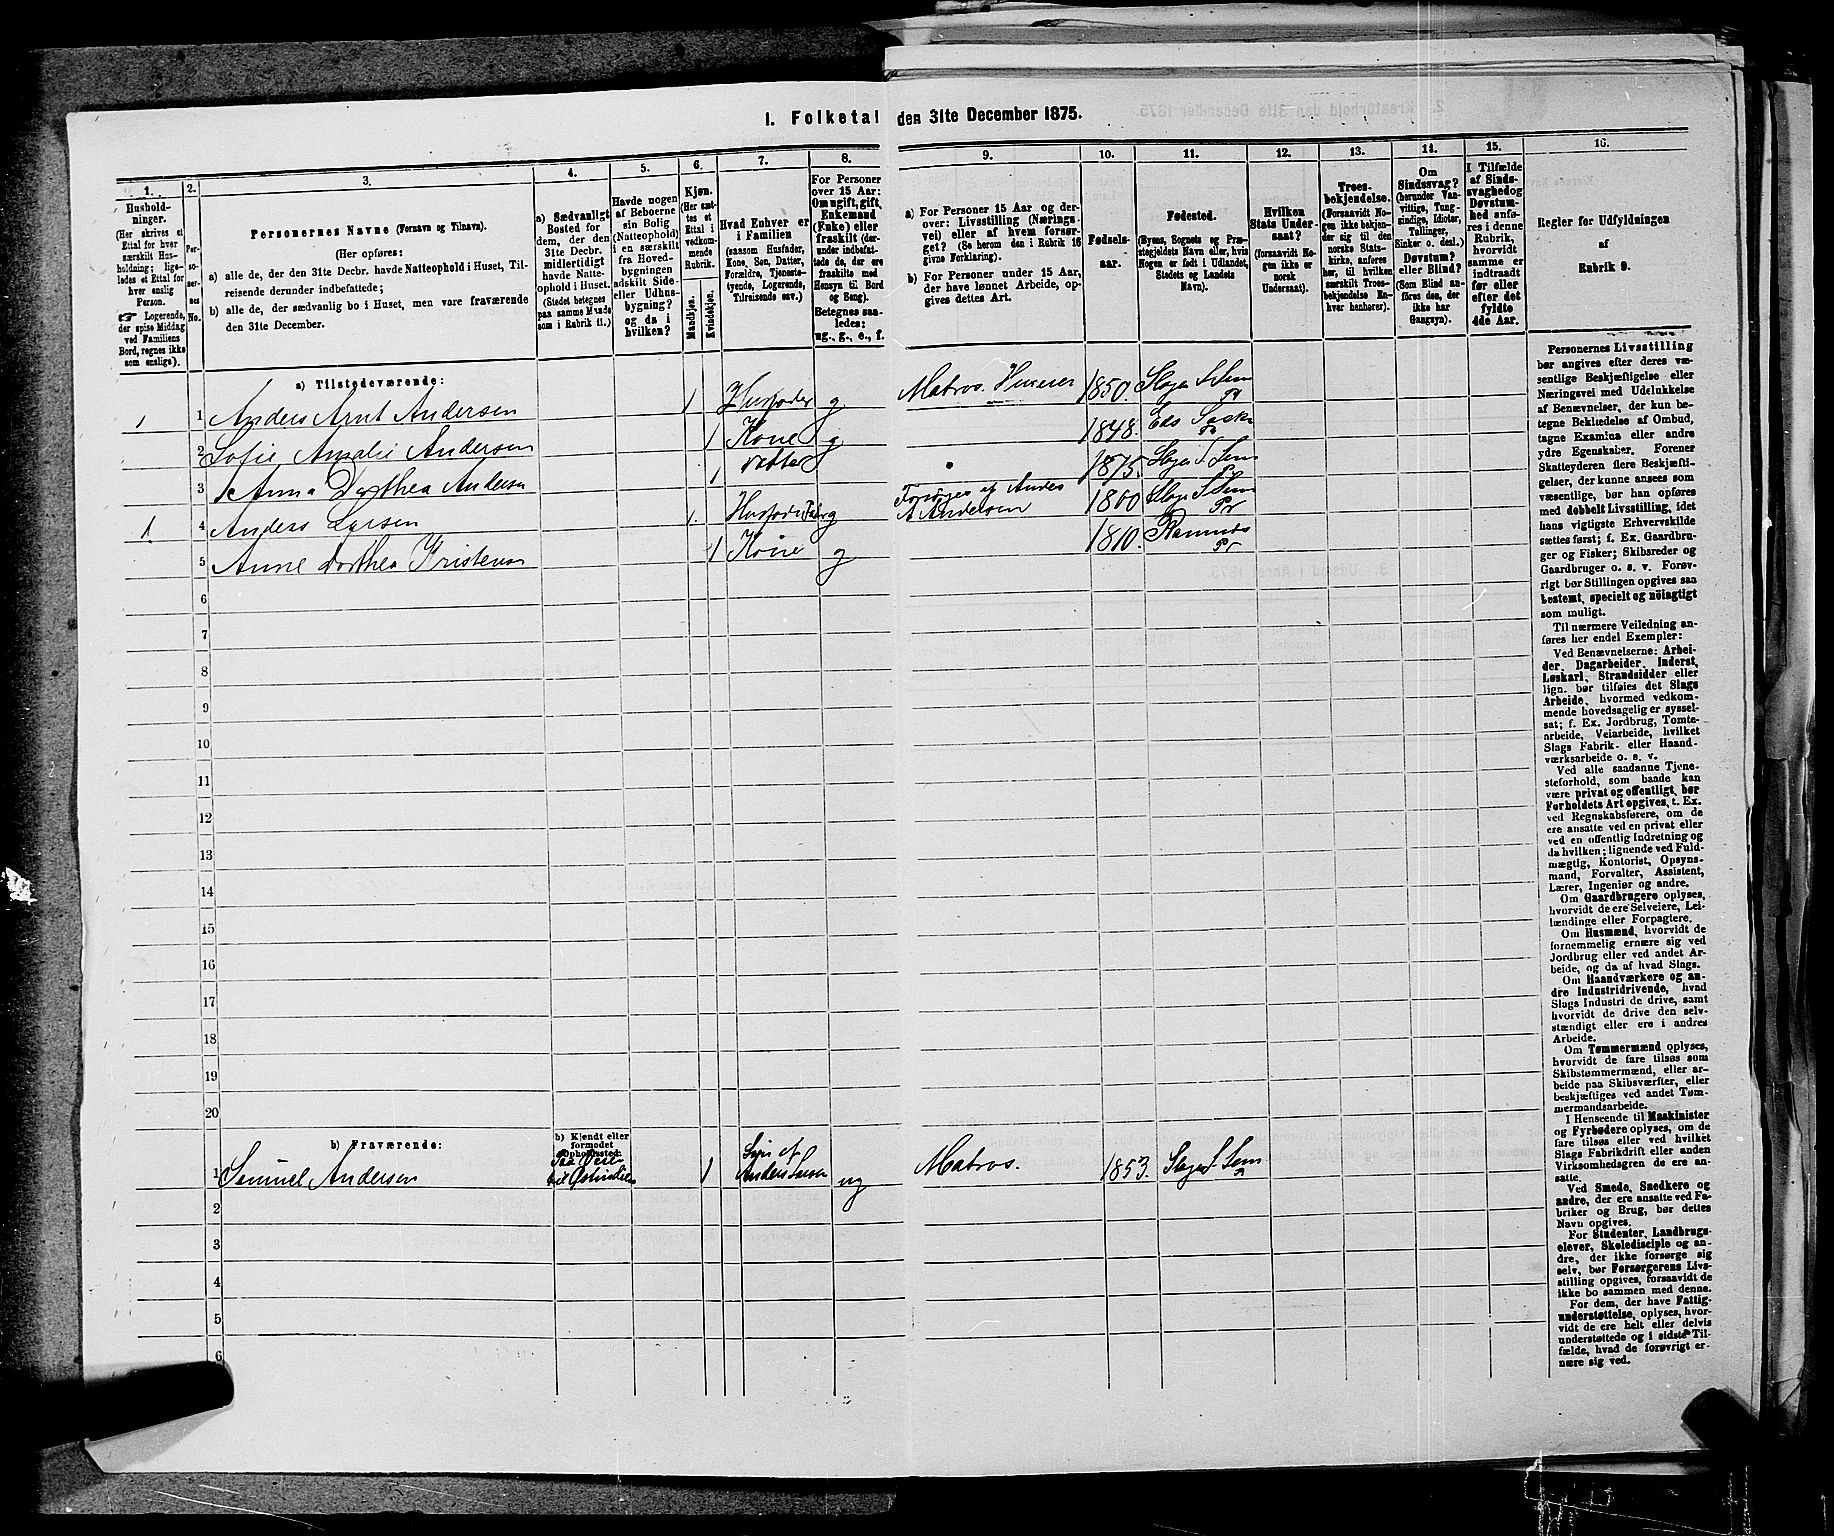 I. Folketal den 31te December 1875.
1. 2. 3. 4. 5. 6. 7. 8. 9. 10. 11. 12. 13. 14. 15. 16.
Hushold-
ninger.
(Her skrives et
Ettal for hver
særskilt Hus-
holdning; lige-
ledes et Ettal for
hver enslig
Person.
☞ Logerende,
der spise Middag
ved Familiens
Bord, regnes ikke
som enslige).
Per-
so-
ner-
nes
No.
Personernes Navne (Fornavn og Tilnavn).
(Her opføres:
a) alle de, der den 31te Decbr. havde Natteophold i Huset, Til-
reisende derunder indbefattede;
b) alle de, der sædvanlig bo i Huset, men vare fraværende
den 31te December.
a) Sædvanligt
Bosted for
dem, der den
31te Decbr.
midlertidigt
havde Natte-
ophold i Huset.
(Stedet betegnes
paa samme Maade
som i Rubrik 11.)
Havde nogen
af Beboerne
sin Bolig
(Natteophold)
i en særskilt
fra Hoved-
bygningen
adskilt Side-
eller Udhus-
bygning?
og da i
hvilken?
Kjøn.
(Her sæt-
tes et
Ettal i
vedkom-
mende
Rubrik.
Mandkjøn.
Kvindekjøn.
Hvad Enhver er
i Familien
(saasom Husfader,
Kone, Søn, Datter,
Forældre, Tjeneste-
tyende, Logerende,
Tilreisende osv.)
For Personer
over 15 Aar:
Om ugift, gift,
Enkemand
(Enke) eller
fraskilt (der-
under indbefat-
tede de, der ere
fraskilte med
Hensyn til Bord
og Seng).
Betegnes saa-
ledes:
ug., g., e., f.
a) For Personer 15 Aar og der-
over: Livsstilling (Nærings-
vei) eller af hvem forsør-
get? (Se herom den i Rubrik 16
givne Forklaring).
b) For Personer under 15 Aar,
der have lønnet Arbeide, op-
gives dettes Art.
Fødsels-
aar.
Fødested.
(Byens, Sognets og Præ-
stegjeldets Navn eller, hvis
Nogen er født i Udlandet,
Stedets og Landets
Navn).
Hvilken
Stats Under-
saat?
(forsaavidt No-
gen ikke er
norsk
Undersaat).
Troes-
bekjendelse.
(Forsaavidt No-
gen ikke bekjen-
der sig til den
norske Stats-
kirke, anføres
her, til hvilken
særskilt Troes-
bekjendelse En-
hver henhører).
Om
Sindssvag?
(herunder Van-
vittige, Tung-
sindige, Idioter,
Tullinger,
Sinker o. desl.)
Døvstum?
eller Blind?
(Som Blind an-
føres den, der
ikke har
Gangsyn).
I Tilfælde
af Sinds-
svaghed og
Døvstum-
hed anfø-
res i denne
Rubrik,
hvorvidt
samme er
indtraadt
før eller
efter det
fyldte
4de Aar.
Regler for Udfyldningen
af
Rubrik 9.
a) Tilstedeværende:
1 1 Anders Arnt Andersen 1 Husfader g Matros. 1850. Slagn S Sem Pr
2 Sofie Amalie Andersen 1 Kone g 1848. Eds
3 Anna Dorthea Andersen 1 Datter 1875. Slagn S Sem Pr
1 4 Anders Larsen 1. Husfader g Forsørges af Anders A Andersen 1800 Slagn S Sem Pr
5 Anne Dorthea Kristensen 1 Kone g 1810. Ramnes Pr
6
7
8
9
10
11
12
13
14
15
16
17
18
19
20
b) Fraværende:
b) Kjendt eller
formodet
Opholdssted.
1 Samuel Andersen Paa Reise til Ostindien 1 Søn af Anders Larsen ug Matros. 1853. Slagn S Sem Pr
2
3
4
5
6
Personernes Livsstilling
bør angives efter deres væ-
sentlige Beskjæftigelse eller
Næringsvei med Udelukkelse
af Benævnelser, der kun be-
tegne Bekledelse af Ombud,
tagne Examina eller andre
ydre Egenskaber. Forener
Skatteyderen flere Beskjæfti-
gelser, der kunne ansees som
væsentlige, bør han opføres
med dobbelt Livsstilling, idet
hans vigtigste Erhvervskilde
sættes først; f. Ex. Gaardbru-
ger og Fisker; Skibsreder og
Gaardbruger o. s. v. Forøv-
rigt bør Stillingen opgives saa
bestemt, specielt og nøiagtigt
som muligt.
Til nærmere Veiledning an-
føres her endel Exempler:
Ved Benævnelserne: Arbei-
der, Dagarbeider, Inderst,
Løskarl, Strandsidder eller
lign. bør tilføies det Slags
Arbeide, hvormed vedkom-
mende hovedsagelig er syssel-
sat; f. Ex. Jordbrug, Tomte-
arbeide, Veiarbeide, hvilket
Slags Fabrik- eller Haand-
værksarbeide o. s. v.
Ved alle saadanne Tjene-
steforhold, som baade kan
være privat og offentligt, bør
Forholdets Art opgives, t. Ex.
ved Regnskabsførere, om de
ere ansatte ved en privat eller
ved en offentlig Indretning og
da hvilken; lignende ved Fuld-
mægtig, Kontorist, Opsyns-
mand, Forvalter, Assistent,
Lærer, Ingeniør og andre.
Om Gaardbrugere oplyses,
hvorvidt de ere Selveiere, Lei-
lændinge eller Forpagtere.
Om Husmænd, hvorvidt de
fornemmelig ernære sig ved
Jordbrug eller ved andet Ar-
beide, og da af hvad Slags.
Om Haandværkere og an-
dre Industridrivende, hvad
Slags Industri de drive, samt
hvorvidt de drive den selv-
stændigt eller ere i andres
Arbeide.
Om Tømmermænd oplyses,
hvorvidt de fare tilsøs som
Skibstømmermænd, eller ar-
beide paa Skibsværfter, eller
beskjæftiges ved andet Tøm-
mermandsarbeide.
I Henseende til Maskinister
og Fyrbødere oplyses, om de
fare tilsøs eller ved hvilket
Slags Fabrikdrift eller anden
Virksomhedsgren de ere an-
satte.
Ved Smede, Snedkere og
andre, der ere ansatte ved Fa-
briker og Brug, bør dettes
Navn opgives.
For Studenter, Landbrugs-
elever, Skoledisciple og an-
dre, der ikke forsørge sig
selv, bør Forsørgerens Livs-
stilling opgives, forsaavidt de
ikke bo sammen med denne.
For dem, der have Fattig-
understøttelse, oplyses, hvor-
vidt de ere helt eller delvis
understøttede og i sidste Til-
fælde, hvad de forøvrigt er-
nære sig ved.